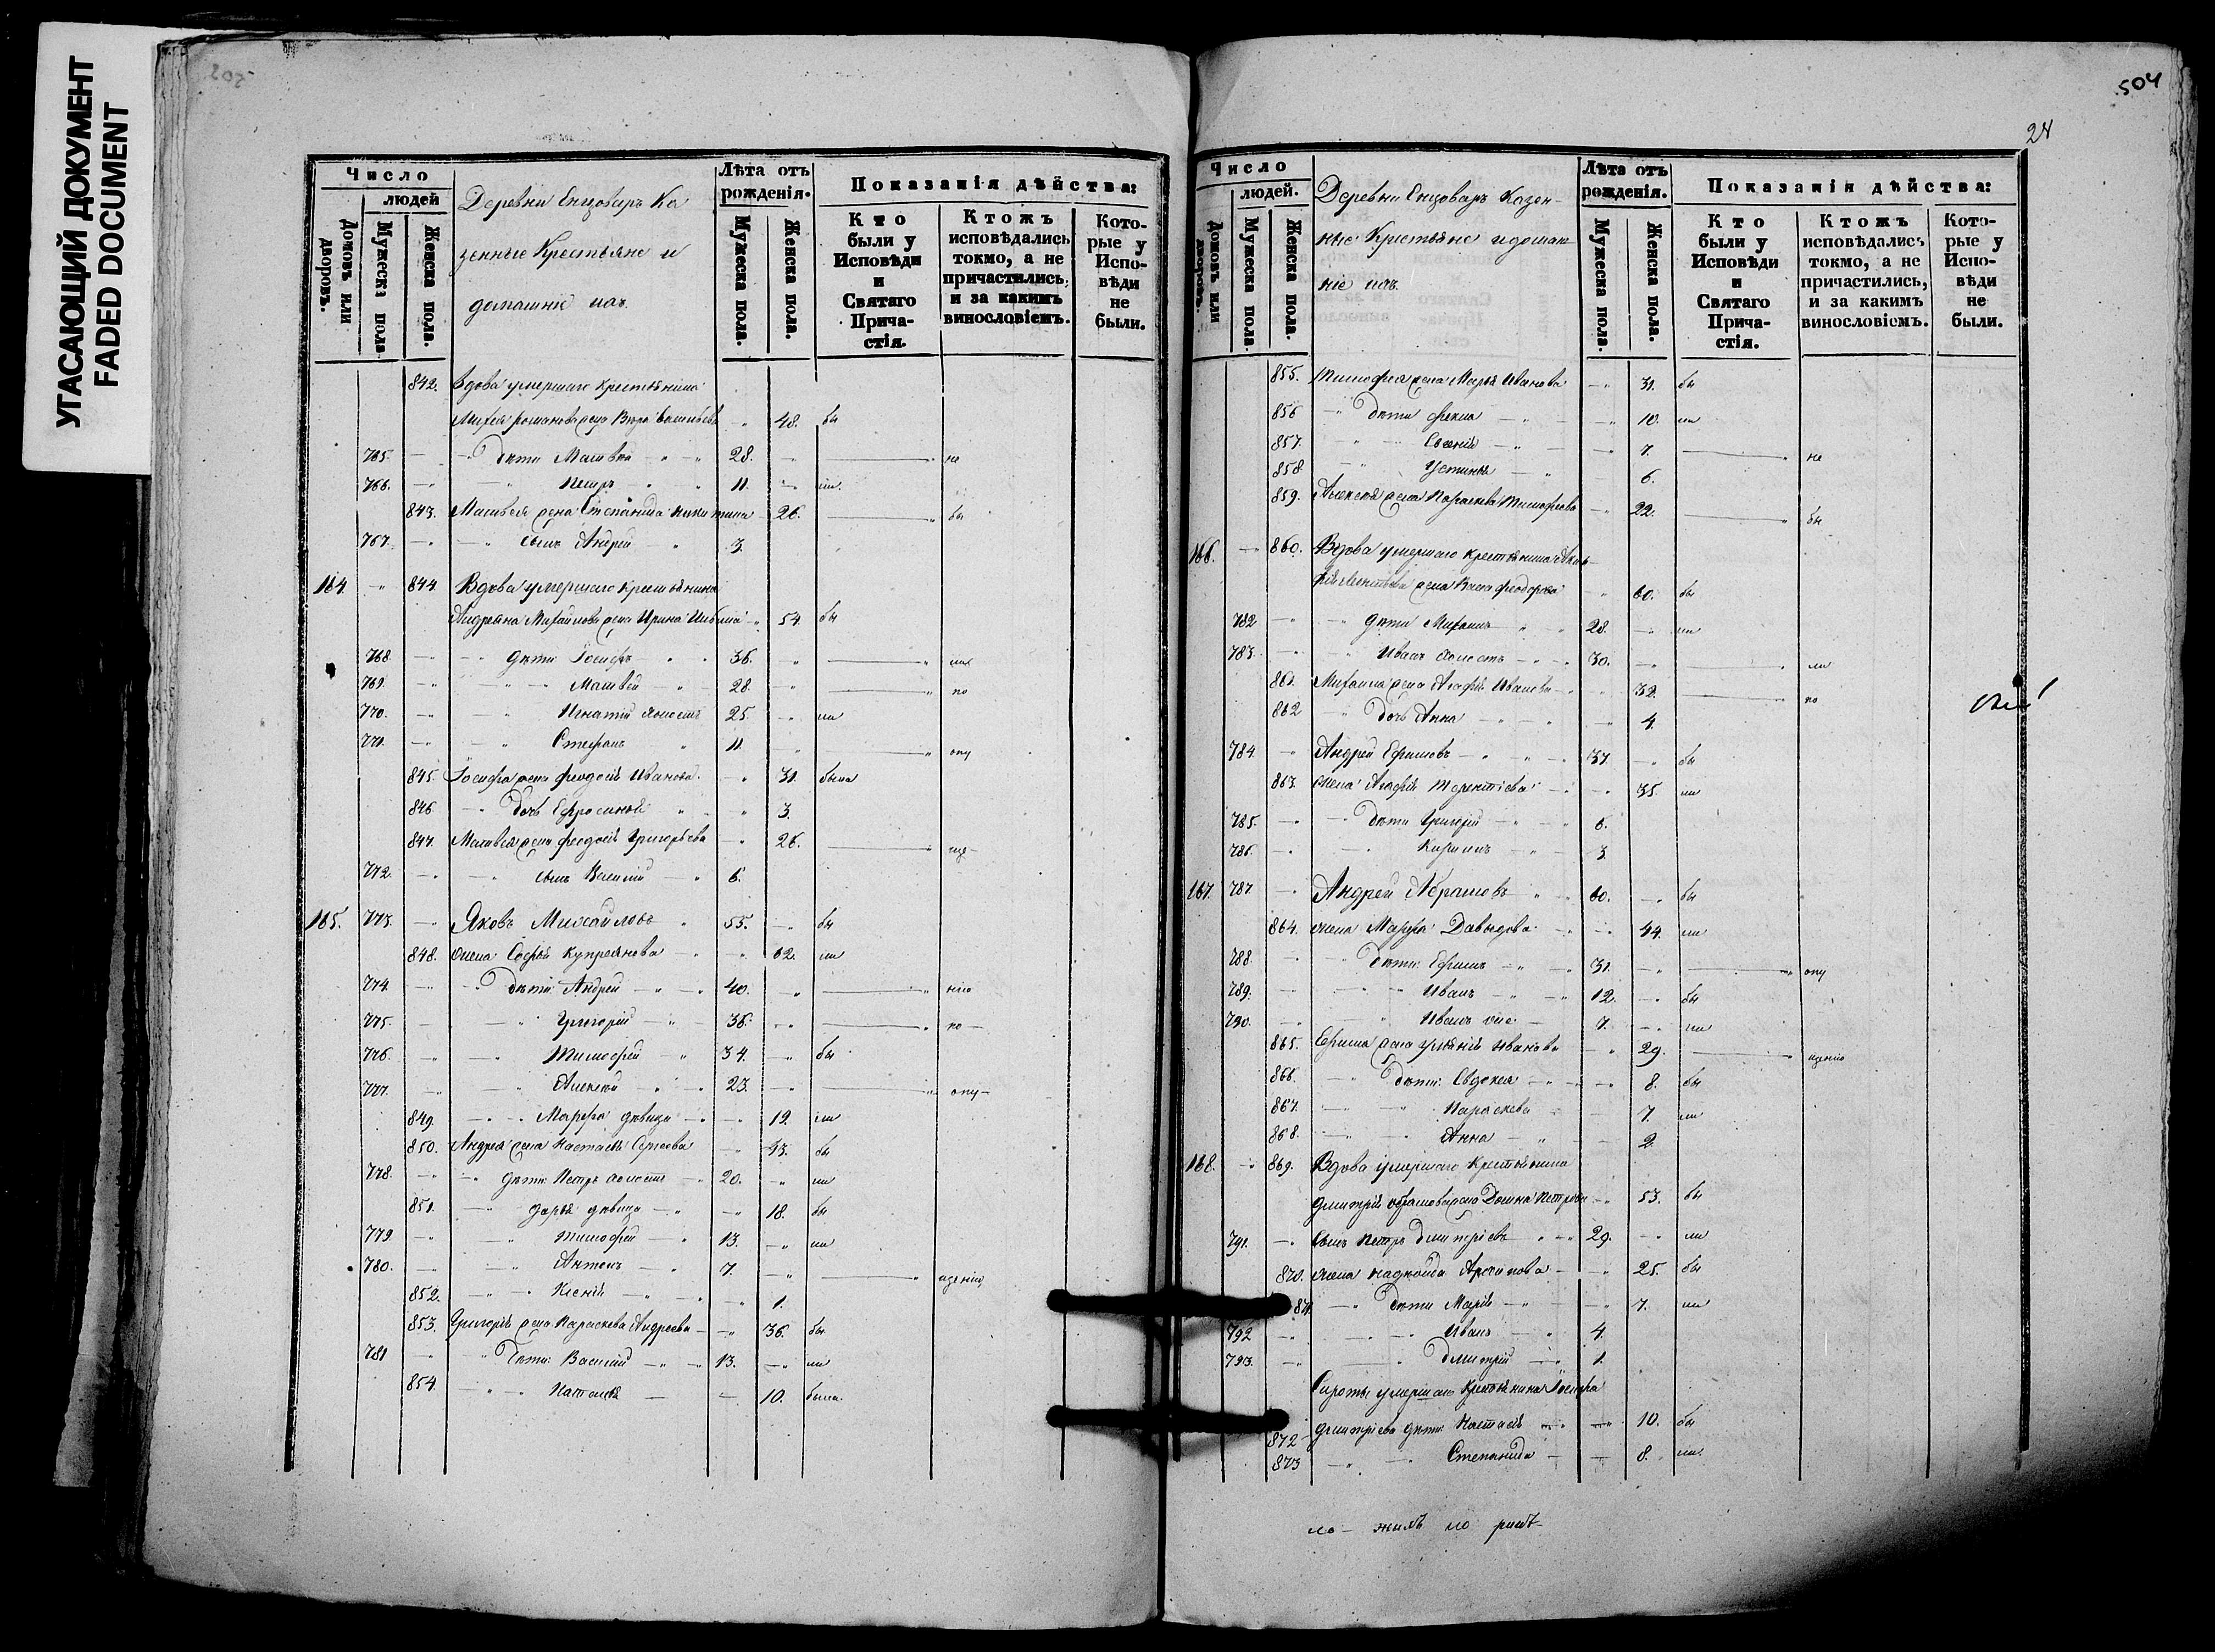 УГАСАЮЩИЙ ДОКУМЕНТ
FADED DOCUMENT
205
Число
людей
Домовъ или дворовъ.
Мужеска пола.
Женска пола.
Деревни Енцоваръ Ка
зенные Крестьяне и
домашніе ихъ
Лѣта отъ рожденія.
Мужеска пола.
Женска пола.
Показанія дѣйства:
Кто были у Исповѣди и Святаго Причастія.
Ктожъ исповѣдались токмо, а не причастились, и за какимъ винословіемъ.
Которые у Исповѣди не были.
842. Вдова умершаго крестьянина
48. бы
765. — дѣти Матвей 28. — не
766. — Петръ 11. — ли
843. Матвея жена Степанида Никитина 26. — бы
767. — сынъ Андрей 3.
164. 844. Вдова умершаго крестьянина
Андреяна Михайлова жена Ирина 54. бы
768. — дѣти Іосифъ 36.
769. — Матвей 28. — по
770. — Игнатій холостъ 25. ли
771. — Стефанъ 11. — опу
845. Іосифа жена Феодосія Иванова 31. была
846 — дочь Ефросинія 3.
847. Матвея жена Феодосія Григорьева 26.
772. — сынъ Василий 6.
165. 773. Яковъ Михайловъ 55. — бы
848. жена Софья Купреянова 62. ли
774. — дѣти Андрей 40.
775. — Григорій 36. — по
776. — Тимофей 34. — бы
777. — Алексей 23. — опу
849. — Марфа дѣвица 19. ли
850. Андрея жена Настасья Сергеева 43. бы
778. — дѣти Петръ холостъ 20. — ли
851. — Дарья дѣвица 18. бы
779 — Тимофей 13. — ли
780. — Антонъ 7. — щенію
852. — Ксенія 1.
853. Григорія жена Параскева Андреева 36. бы
781 — дѣти Василий 13. — ли
854. — Наталья 10. была.
504
24
Число
людей.
Домовъ или дворовъ.
Мужеска пола.
Женска пола.
Деревни Енцоваръ Казен-
ные Крестьяне и домаш
ніе ихъ
Лѣта отъ рожденія.
Мужеска пола.
Женска пола.
Показанія дѣйства:
Кто были у Исповѣди и Святаго Причастія.
Ктожъ исповѣдались токмо, а не причастились, и за какимъ винословіемъ.
Которые у Исповѣди не были.
855. Тимофея жена Марья Иванова 31. бы
856 — дѣти Фекла 10. ли
857. — 7. — не
858 — Устинья 6.
859. Алексея жена Параскева Тимофеева 22. — бы
166. — 860. Вдова умершаго крестьянина
жена Васса Феодорова 60. бы
782 — дѣти Михаилъ 28. — ли
783. — Иванъ холостъ 30. — ли
861. Михаила жена Агафья Иванова 32. — по
862 — дочь Анна 4.
784. — Андрей Ефимовъ 37. — бы
863. жена Агафья Терентіева 35. ли
785. — дѣти Григорій 6.
786. — Кирилъ 3.
167. 787 — Андрей Абрамовъ 60. — бы
864. жена Марфа Давыдова 44. ли
788. — дѣти Ефимъ 31. — опу
789. — Иванъ 12. — бы
790. — Иванъ 7. — ли
865. Ефима жена Иванова 29. — щенію
866. — дѣти Евдокея 8. бы
867. — Параскева 7. ли
868. — Анна 2.
168. — 869. Вдова умершаго крестьянина
Дмитрія Абрамова жена Домна Петрова 53. бы
791. — сынъ Петръ Дмитріевъ 29. — ли
870. жена Надежда Архипова 25. бы
871. — дѣти Марія 7. ли
792 — Иванъ 4.
793. — Дмитрій 1.
Сироты умершаго крестьянина Іосифа
872 Дмитріева дѣти Настасія 10. бы
873 — Степанида 8. ли